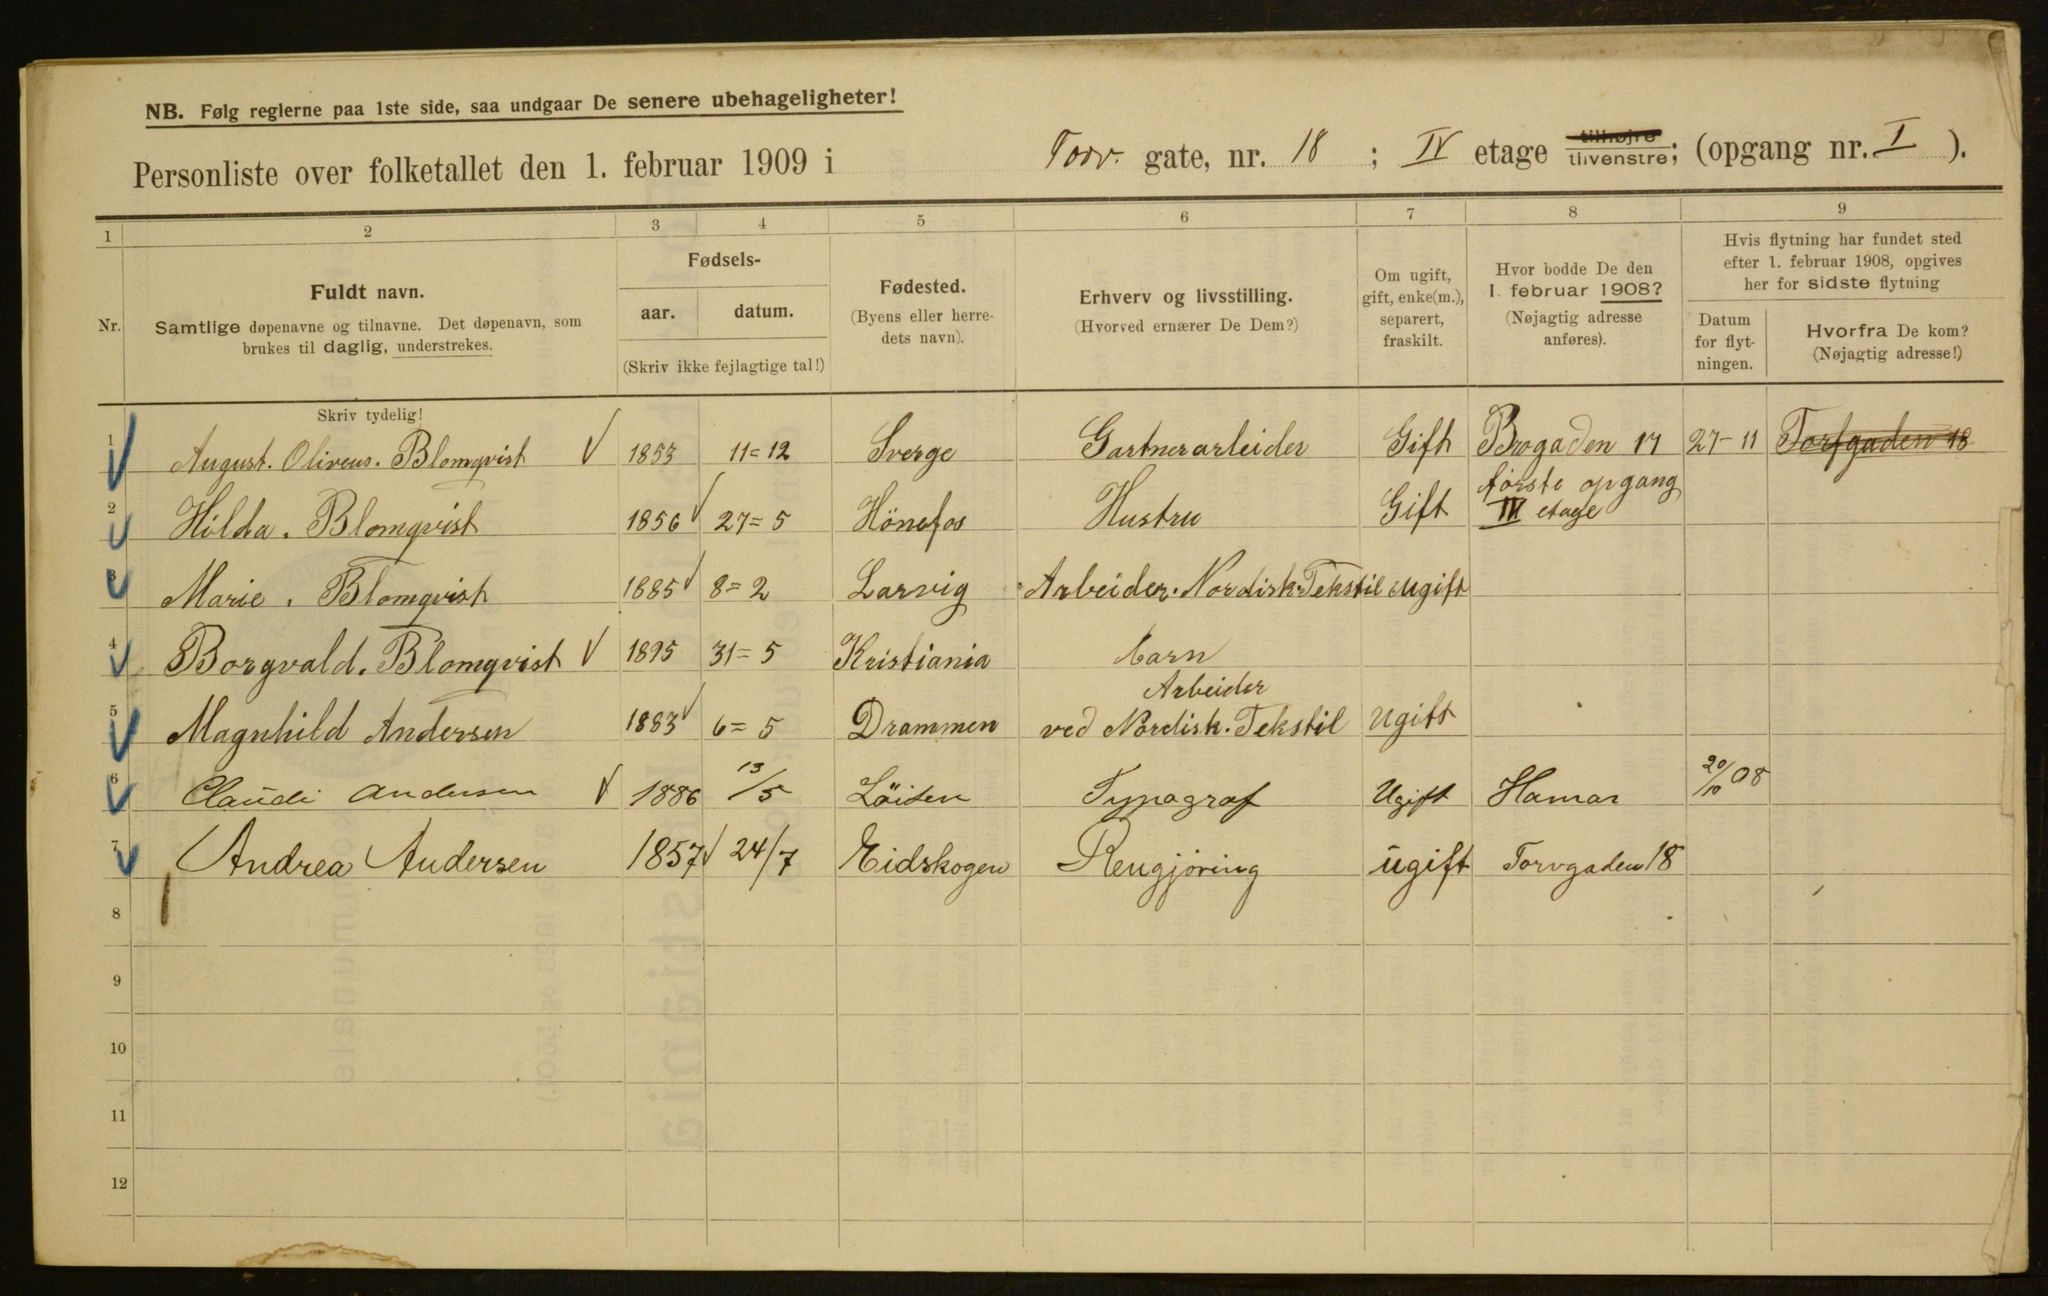 NB. Følg reglerne paa 1ste side, saa undgaar De senere ubehageligheter!
Personliste over folketallet den 1. februar 1909 i Torv. gate, nr. 18 ; IV etage tilhøjre tilvenstre; (opgang nr. I ).
1 2 3 4 5 6 7 8 9
Nr.
Fuldt navn.
Samtlige døpenavne og tilnavne. Det døpenavn, som
brukes til daglig, understrekes.
Fødsels-
aar. datum.
(Skriv ikke fejlagtige tal!)
Fødested.
(Byens eller herre-
dets navn).
Erhverv og livsstilling.
(Hvorved ernærer De Dem?)
Om ugift,
gift, enke(m.),
separert,
fraskilt.
Hvor bodde De den
1. februar 1908?
(Nøjagtig adresse
anføres).
Hvis flytning har fundet sted
efter 1. februar 1908, opgives
her for sidste flytning
Datum
for flyt-
ningen.
Hvorfra De kom?
(Nøjagtig adresse!)
Skriv tydelig!
1 August. Oliveus. Blomqvist 1853 11=12 Sverge Gartnerarbeider Gift Brogaden 17 27-11 Torfgaden 18
første opgang
2 Hilda. Blomqvist 1856 27=5 Hönefos Hustru Gift IV etage
3 Marie. Blomqvist 1885 8=2 Larvig Arbeider. Nordisk. Tekstil Ugift
4 Borgvald. Blomqvist 1895 31=5 Kristiania barn
Arbeider
5 Magnhild Andersen 1883 6=5 Drammen ved Nordisk. Tekstil Ugift
6 Claudi Andersen 1886 13/5 Löiten Typograf Ugift Hamar 20/10 08
7 Andrea Andersen 1857 24/7 Eidskogen Rengjöring ugift Torvgaden 18
8
9
10
11
12